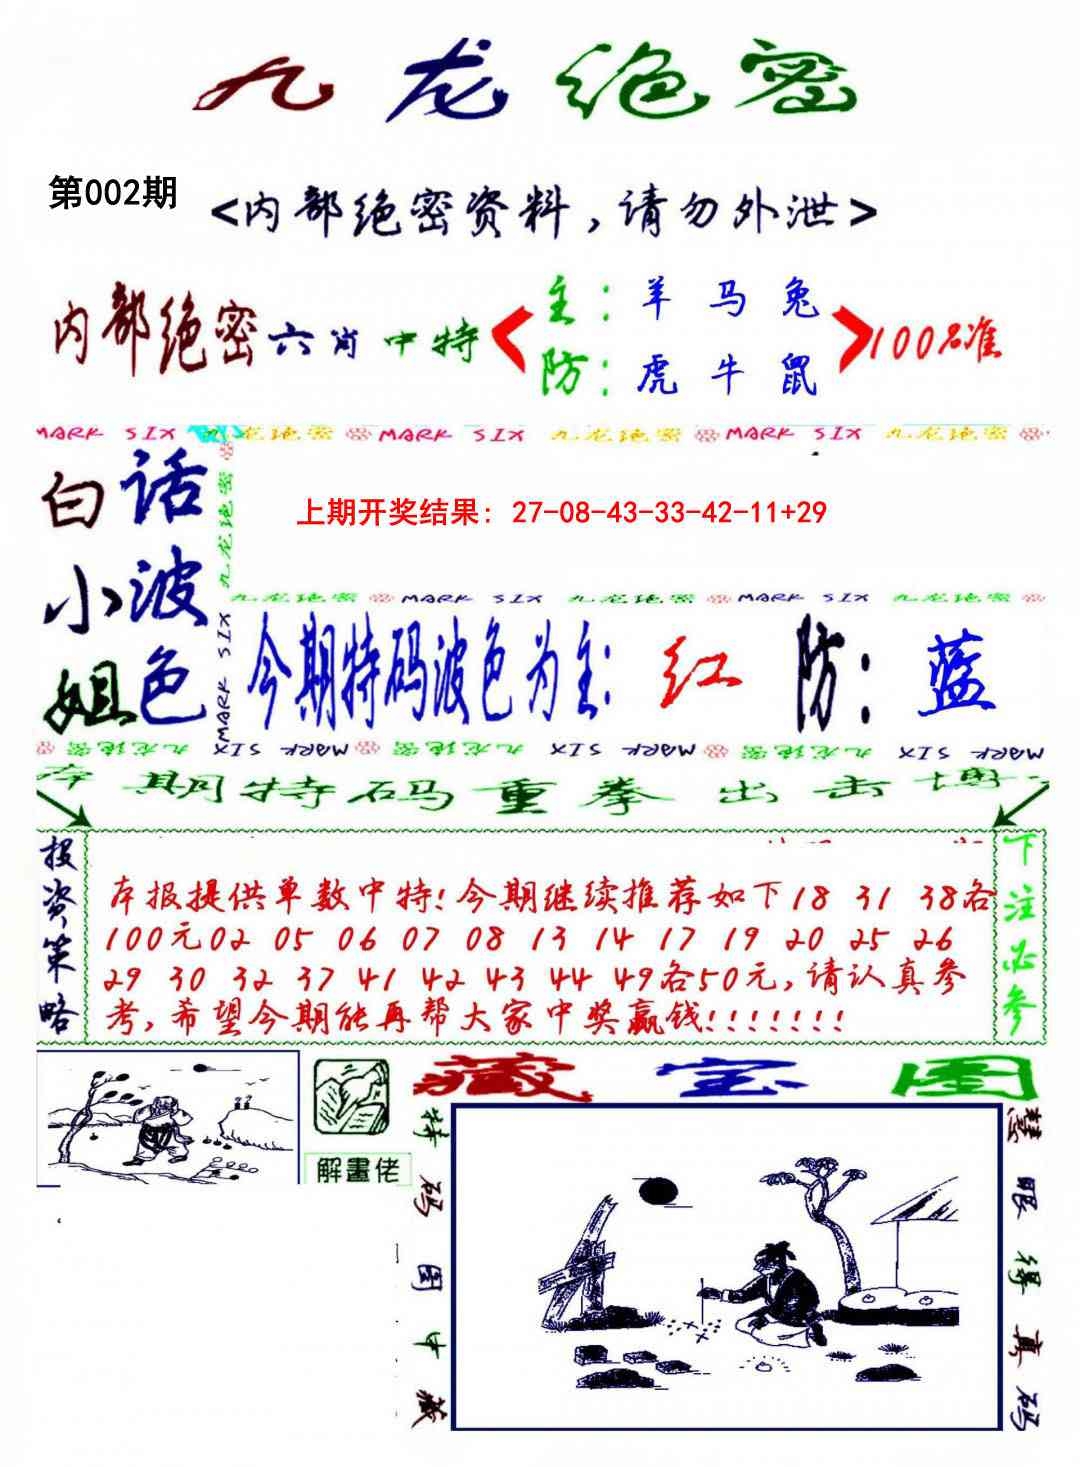 九龙绝密
第002期
<内部绝密资料,请勿外泄>
内部绝密六肖中特
主:羊 马 兔
防:虎 牛 鼠
100%准
MARK SIX 九龙绝密 MARK SIX 九龙绝密 MARK SIX 九龙绝密
白话
小波
姐色
九龙绝密
MARK SIX
上期开奖结果: 27-08-43-33-42-11+29
九龙绝密 MARK SIX 九龙绝密 MARK SIX 九龙绝密
今期特码波色为主: 红 防: 蓝
九龙绝密 MARK SIX 九龙绝密 MARK SIX 九龙绝密 MARK SIX
本期特码重拳出击博
投资策略
本报提供单数中特!今期继续推荐如下18 31 38各
100元02 05 06 07 08 13 14 17 19 20 25 26
29 30 32 37 41 42 43 44 49各50元,请认真参
考,希望今期能再帮大家中奖赢钱!!!!!!!
下注必参
解畫佬
藏宝图
特码图中藏
慧眼得真码